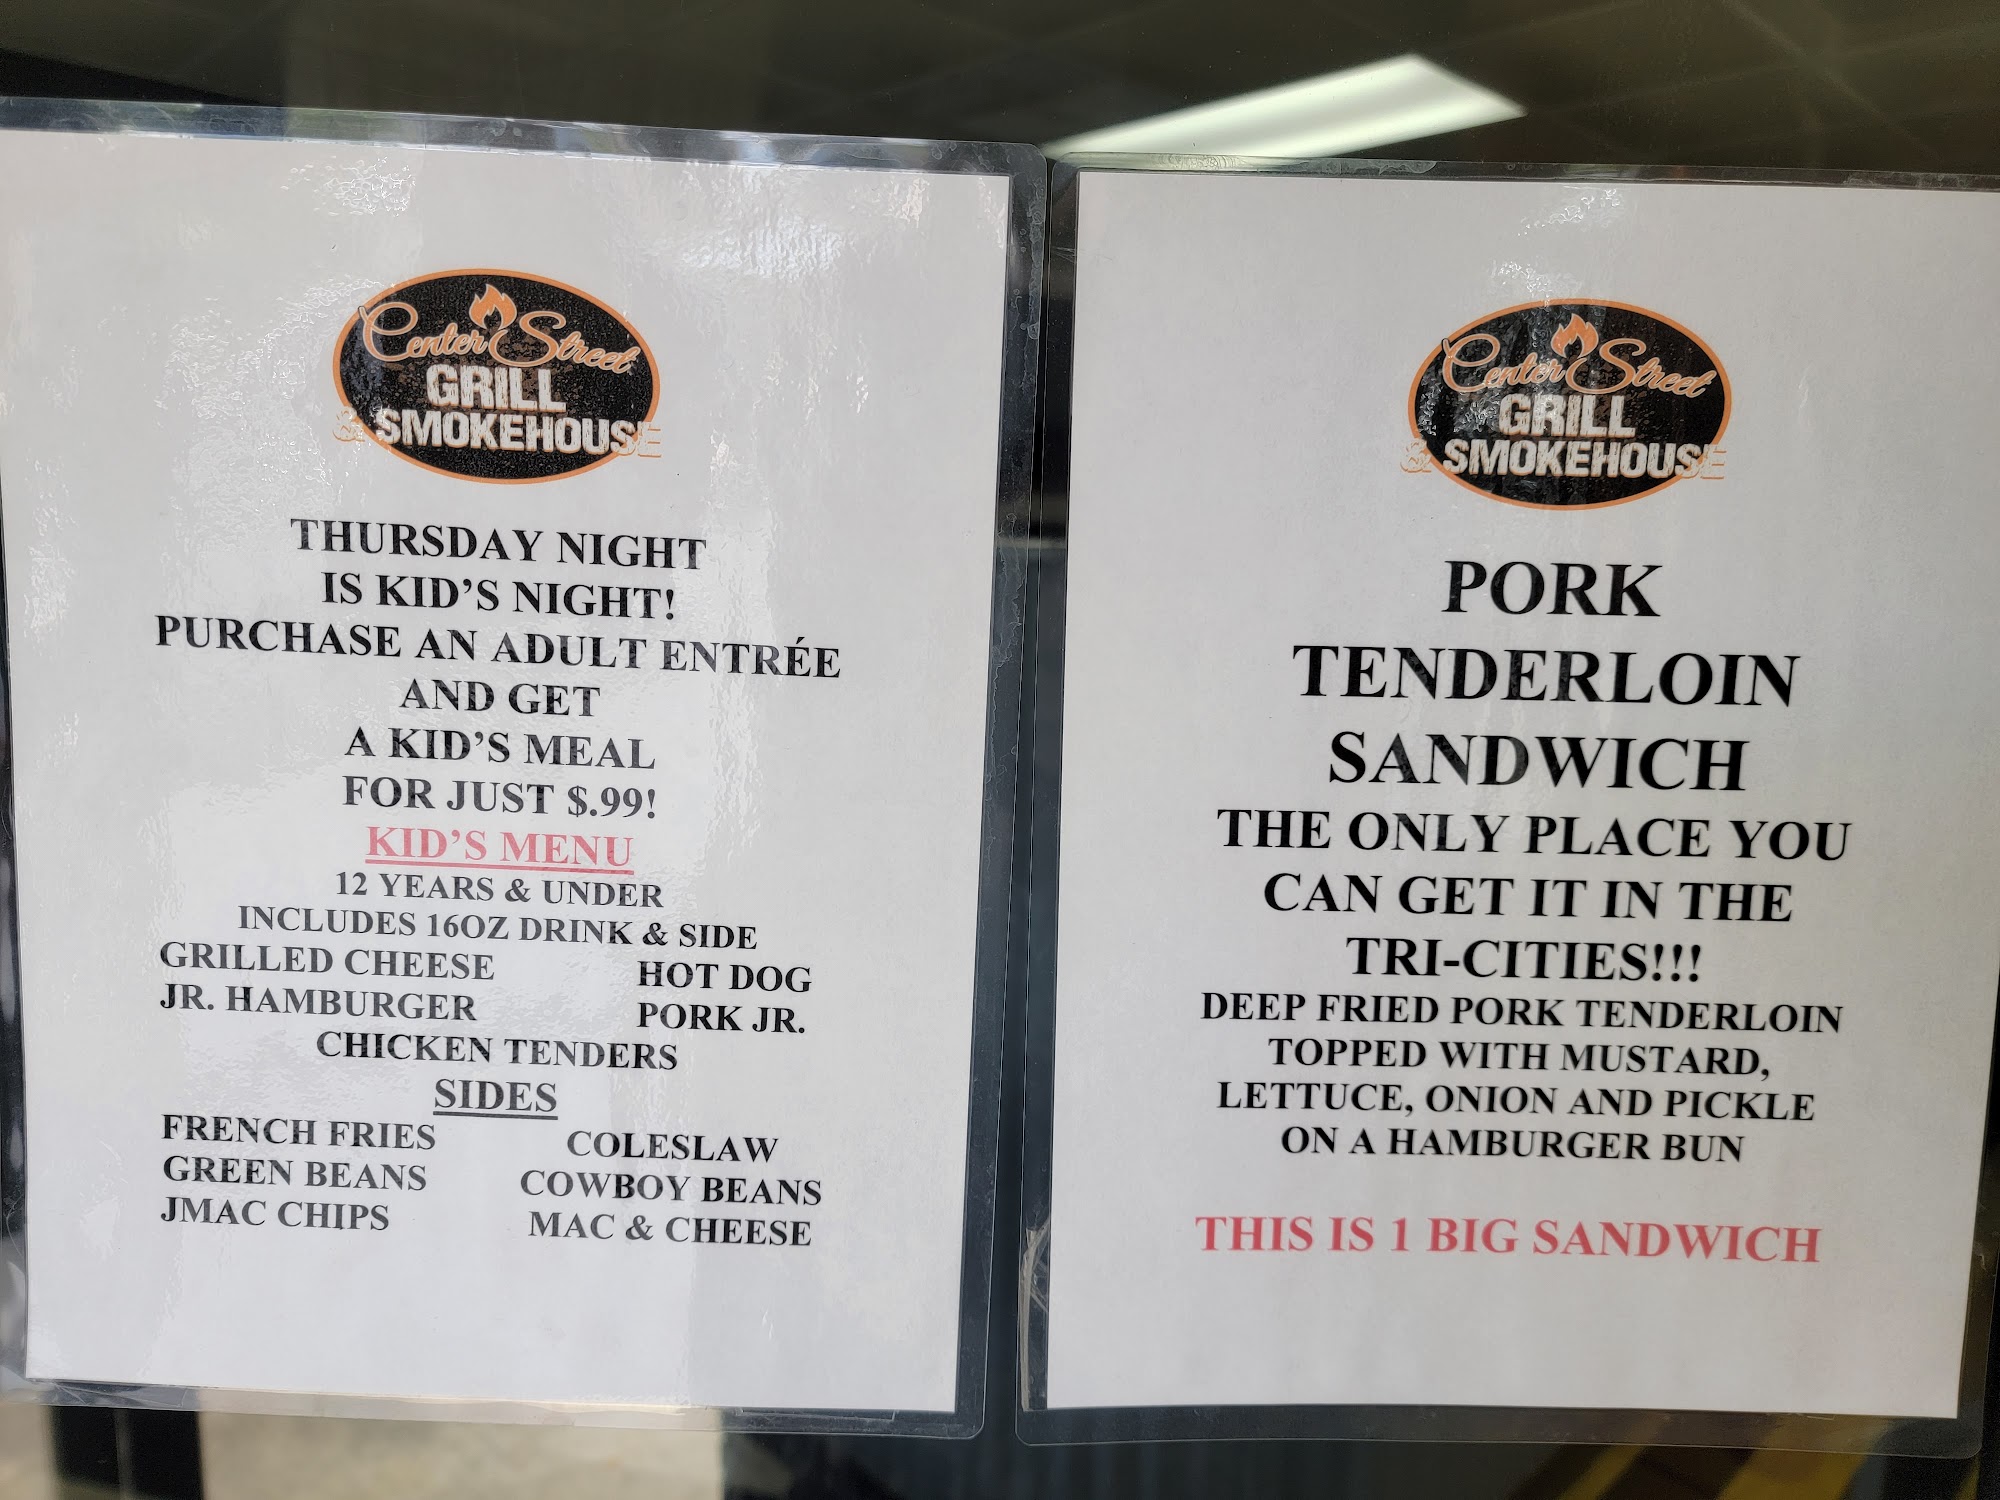 Center Street
GRILL
& SMOKEHOUSE
THURSDAY NIGHT
IS KID'S NIGHT!
PURCHASE AN ADULT ENTRÉE
AND GET
A KID'S MEAL
FOR JUST $.99!
KID'S MENU
12 YEARS & UNDER
INCLUDES 16OZ DRINK & SIDE
GRILLED CHEESE HOT DOG
JR. HAMBURGER PORK JR.
CHICKEN TENDERS
SIDES
FRENCH FRIES COLESLAW
GREEN BEANS COWBOY BEANS
JMAC CHIPS MAC & CHEESE
Center Street
GRILL
& SMOKEHOUSE
PORK
TENDERLOIN
SANDWICH
THE ONLY PLACE YOU
CAN GET IT IN THE
TRI-CITIES!!!
DEEP FRIED PORK TENDERLOIN
TOPPED WITH MUSTARD,
LETTUCE, ONION AND PICKLE
ON A HAMBURGER BUN
THIS IS 1 BIG SANDWICH